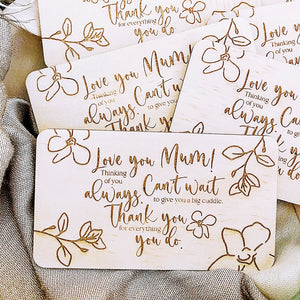 Thank you
for everything
you do.
Love you Mum!
Thinking
of you
always. Can't wait
to give you a big cuddle.
Thank you
Love you Mum!
Thinking
of you
always. Can't wait
to give you
Thank you
Love you Mum!
Thinking
of you
always. Can't wait
to give you a big cuddle.
Thank you
for everything
you do.